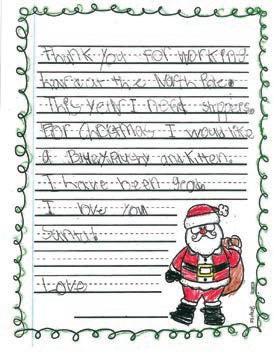 Thank you for working
hard at the North Pole.
This year I need slippers.
For Christmas I would like
a and Kitten.
I have been good.
I love you
Santa!
Love